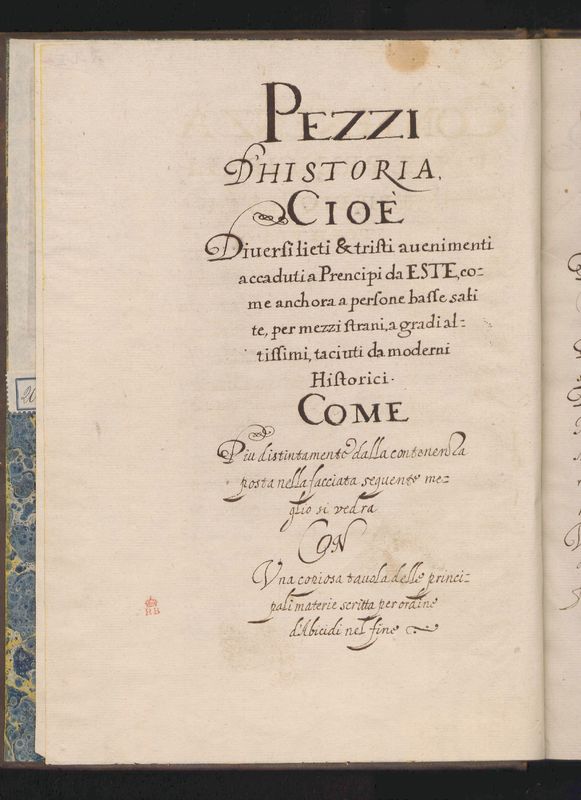 PEZZI
D'HISTORIA.
CIOÈ
Diuersi lieti & tristi auenimenti
accaduti a Prencipi da ESTE, co=
me anchora a persone basse sali
te, per mezzi strani, a gradi al=
tissimi, taciuti da moderni
Historici.
COME
Piu distintamente dalla contenenza
posta nella facciata seguente me=
glio si vedra
CON
Vna copiosa tauola delle princi=
pali materie scritta per ordine
d'Abicidi nel fine
20
RB